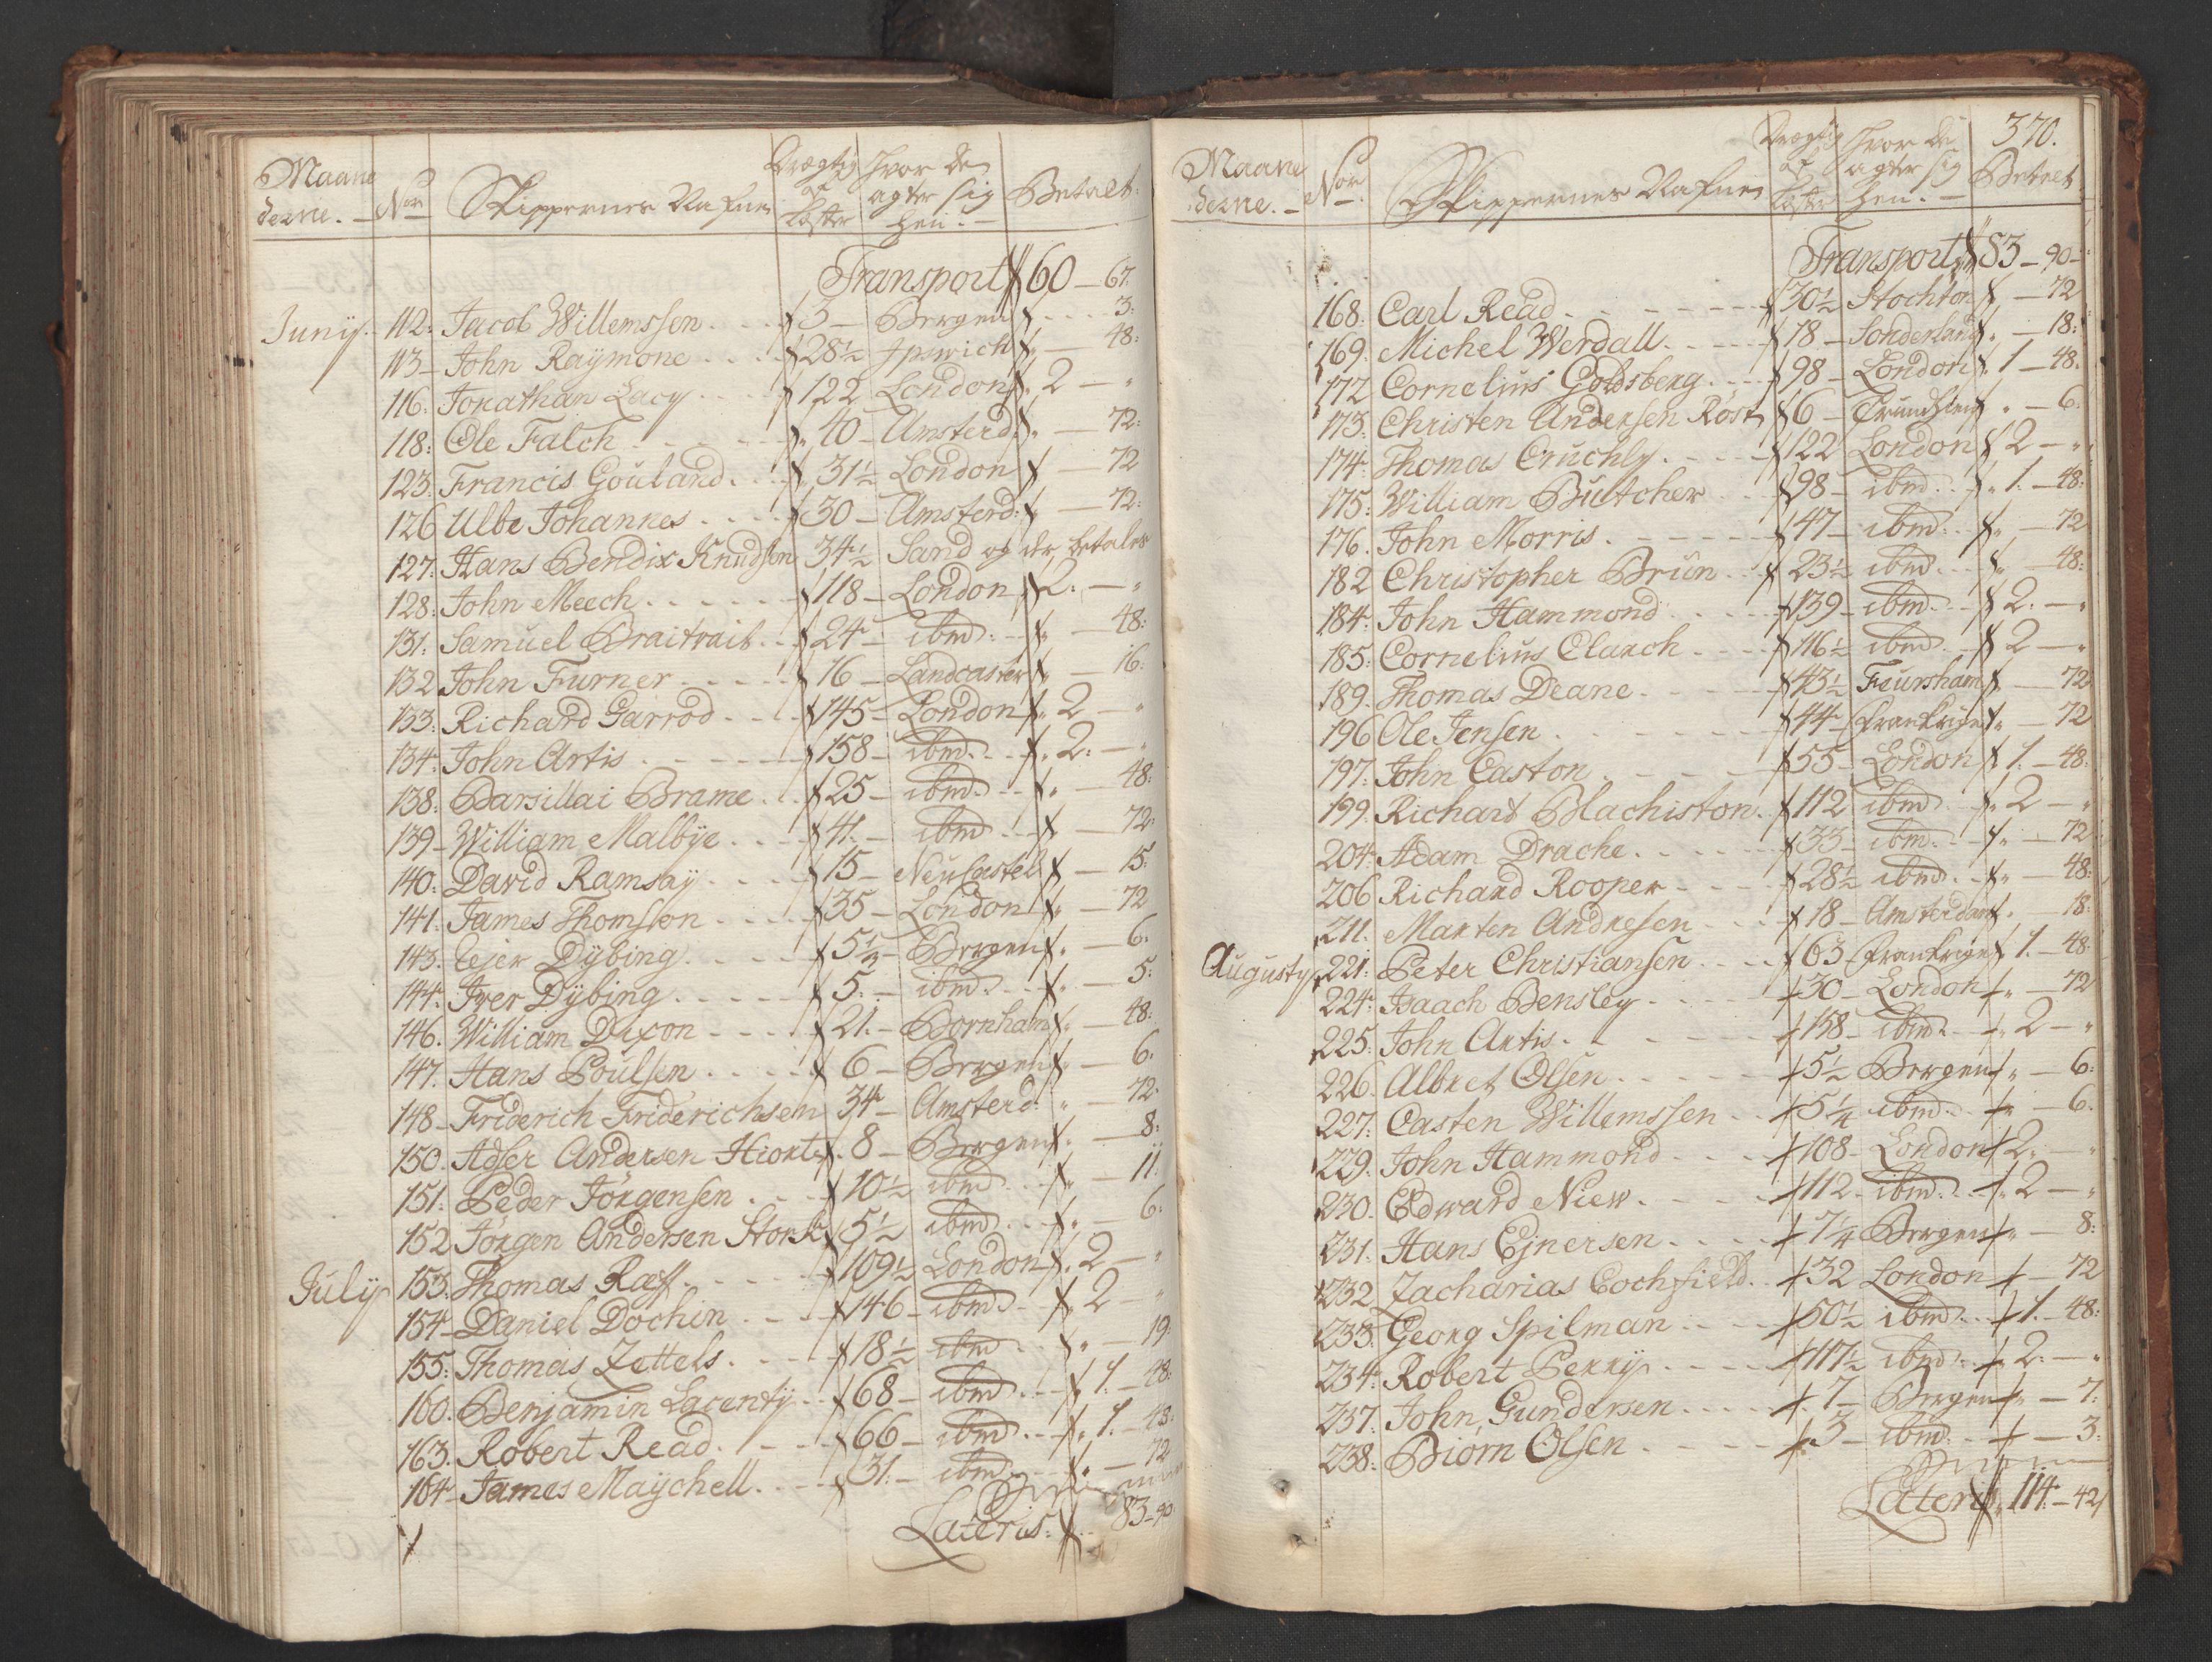 Maane derne. — Nor Skippernes Nafne Drægtig af Læster Hvor de agter sig hen: — Betalt:
Transport 60 — 67.
Junÿ. 112: Jacob Willemssen 3 — Bergen 3:
113 — John Raÿmone 28½ Jpswich — 48:
116. Jonathan Lacy 122 London 2 — "
118: Ole Falch 40 — Amsterd: — 72:
123. Francis Gouland 31½ London — 72
126 Ulbe Johannes 30 — Amsterd: — 72:
127: Hans Bendix Knudsen 34½ Sand og der betaler
128: John Meech 118 — London 2. — "
131: Samuel Braitrait 24 — ibm: — 48:
132 John Furner 16 — Landcaster — 16:
133: Richard Garrod 145 — London 2 — "
134: John Artis 158 — ibm 2: — "
138: Barsillai Brame 25 — ibm — 48:
139 — William Malbÿe 41. — ibm — 72:
140: David Ramsaÿ 15 — NeuCastel — 15:
141. James Thomsson 35 — London — 72
143. Ejer Dÿbing 5½ — Bergen — 6:
144: Iver Dÿbing 5. — ibm — 5:
146. William Dixon 21. — Bornham — 48:
147. Hans Poulsen 6 — Bergen — 6:
148 — Friderich Friderichsen 34 — Amsterd: " — 72:
150. Adser Andersen Hiort 8 — Bergen — 8:
151: Peder Jörgensen 10½ ibm — 11.
152 Jörgen Andersen Stork 5½ ibm — 6:
Julÿ 153. Thomas Raff 109½ London 2 — "
154 — Daniel Dochin 146 — ibm 2 — "
155: Thomas Zettels 18½ ibm — 19:
160. Benjamin Lacentÿ 68 — ibm 1. — 48:
163. Robert Read 66 — ibm 1. — 48:
164 — James Maÿchell 31. — ibm — 72
Lateris. 83 — 90
370.
Maane derne. — Nor. Skippernes Nafne Drægtig af Læster Hvor de agter sig hen. — Betalt
Transport 83 — 90 —
168: Carl Read 30½ Stochton — 72
169. Michel Werdall 18 — Sonderland — 18:
172 Cornelius Goldsberg 98 — London 1 — 48:
173: Christen Andersen Röst 6 — Trundhiem — 6:
174: Thomas Cruchly 122 London 2 — "
175: William Bultcher 98 — ibm 1. — 48:
176. John Morris 47 — ibm — 72
182 Christopher Brun 23½ ibm — 48:
184: John Hammond 139 — ibm 2. — "
185: Cornelius Clarch 116½ ibm 2 — "
189. Thomas Deane 43½ Feursham — 72:
196 Ole Jensen 44 — Frankrige — 72
197: John Easton 55 — London 1. — 48:
199. Richart Blachiston 112 ibm 2 — "
204: Adam Drache 33 — ibm — 72
206 Richard Rooper 28½ ibm — 48:
211. Marten Andresen 18 — Amsterdam — 18:
Augustÿ 221: Peter Christiansen 63 — Frankrige 1. — 48:
224: Isaach Bensley 30 — London — 72
225: John Artis 158 — ibm 2 — "
226. Albret Olsen 5½ Bergen — 6:
227: Casten Willemssen 5¼ ibm — 6.
229. John Hammond 108 — London 2. — "
230. Edward Niew 112 — ibm 2 — "
231. Hans Ejnersen 7¼ Bergen — 8:
232. Zacharias Cochsfield 32 London — 72
233. Georg Spilman 50½ ibm 1. — 48:
234: Robert Perrÿ 117½ ibm 2. — "
237: John Gundersen 7 — Bergen — 7:
238: Biörn Olsen 3 — ibm — 3:
Lateris 114: — 42